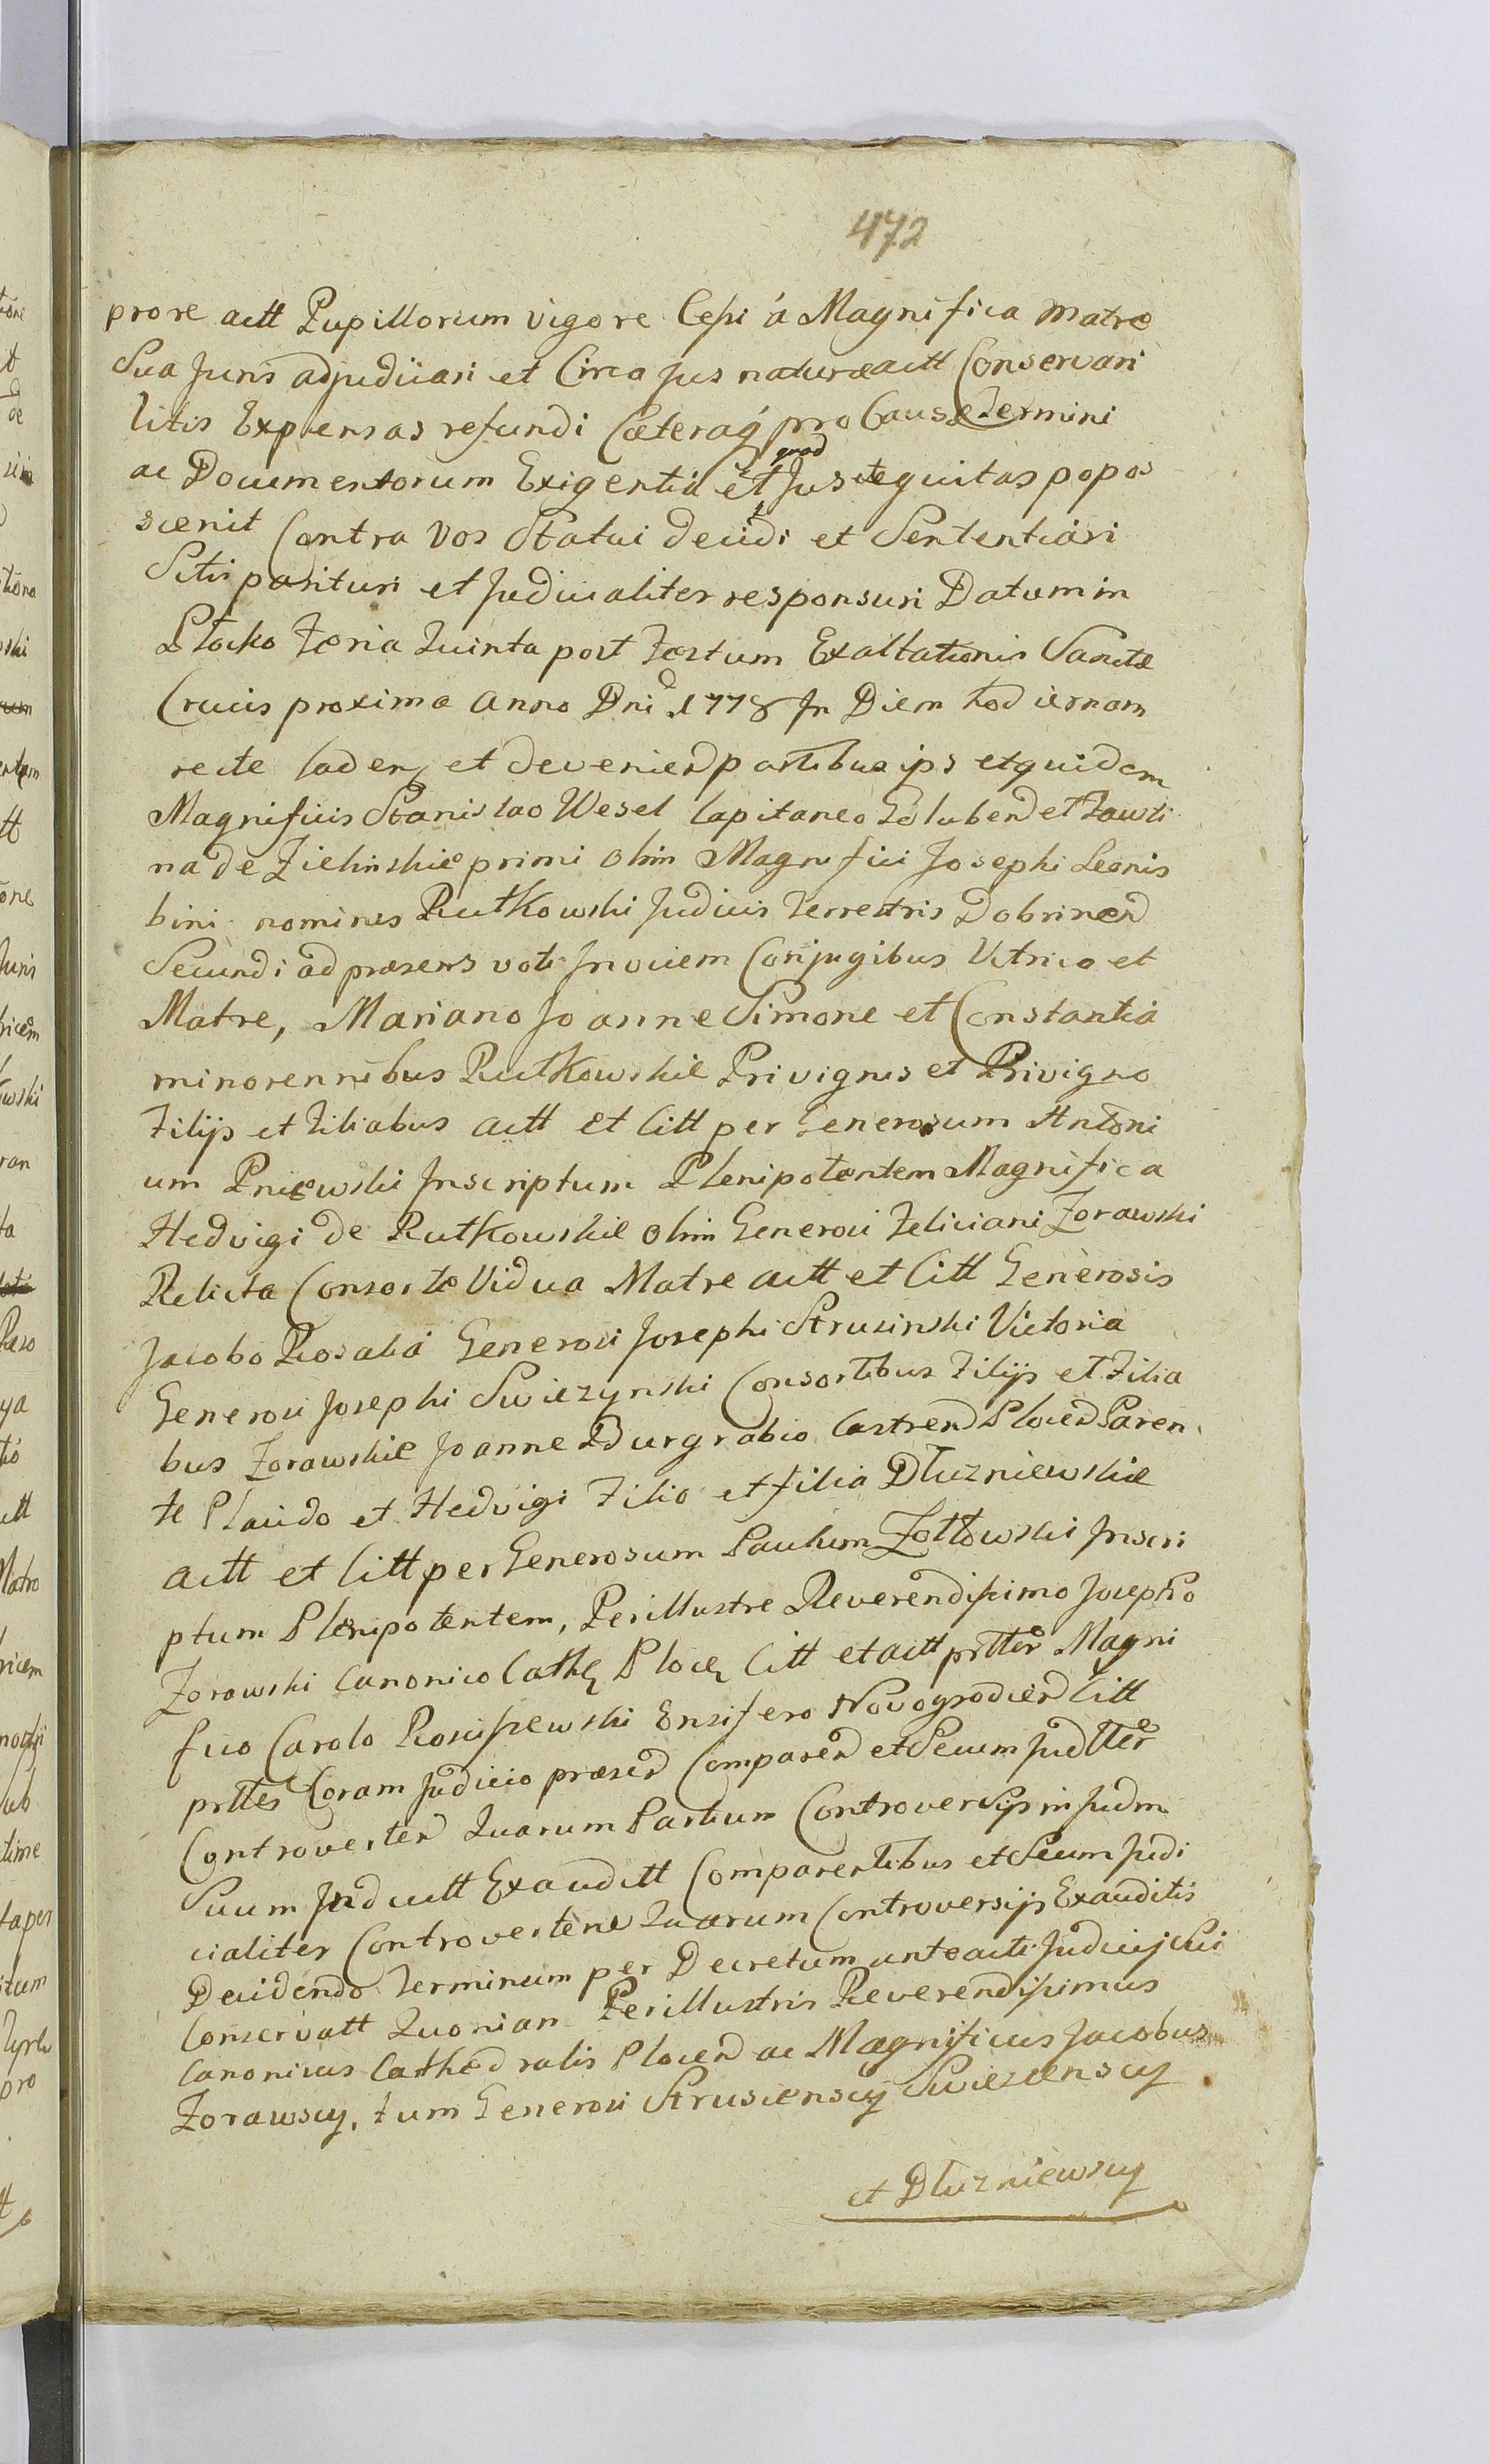 472
prore actt Pupillorum vigore Cessi á Magnifica Matre
Sua Juris adjudicari et Circa Jus naturæ actt Conservari
litis Expensas refundi Cæteraq́ pro Causæ Termini
ac Documentorum Exigentiá et quod Jus æequitas popos
scenit Contra Vos Statui decidi et Sententiari
Sitis parituri et Judicialiter responsuri Datum in
Płocko Feria Quinta post Festum Exaltationis Sanctæ
Crucis proxima Anno Dni 1778 In Diem hodiernam
recte Caden et devenien partibus ips et quidem
Magnificis Stanislao Wesel Capitaneo Goluben et Fausti
na de Zielinskie primi olim Magnifici Josephi Leonis
bini nominis Rutkowski Judicis Terrestris Dobrinen
Secundi ad præsens voti Invicem Conjugibus Vitrico et
Matre, Mariano Joanne Simone et Constantiá
minorennibus Rutkowskie Privignis et Privigno
Filijs et Filiabus actt et Citt per Generosum Antoni
um Pniewski Inscriptum Plenipotentem Magnifica
Hedvigi de Rutkowskie olim Generosi Feliciani Zorawski
Relicta Consorte Vidua Matre actt et Citt Generosis
Jacobo Rosaliá Generosi Josephi Strusinski Victoria
Generosi Josephi Swiezynski Consortibus Filijs et Filia
bus Zorawskie Joanne Burgrabio Castren Plocen Paren
te Placido et Hedvigi Filio et filia Dłuzniewskie
actt et Citt per Generosum Paulum Zołtowski Inscri
ptum Plenipotentem, Perillustre Reverendissimo Josepho
Zorawski Canonico Cath Ploc Citt et actt prtter Magni
fico Carolo Rosciszewski Ensifero Novogrodien Citt
prttes Coram Judicio præsen Comparen et Secum Judtter
Controverten Quarum Partium Controversijs in Judm
Suum Inductt Exauditt Comparentibus et Secum Judi
cialiter Controverten Quarum Controversijs Exauditis
Decidendo Terminum per Decretum anteacti Judicij Sui
Conservatt Quoniam Perillustris Reverendissimus
Canonicus Cathedralis Plocen ac Magnificus Jacobus
Zorawscy, tum Generosi Strusienscy Swiezenscy
et Dłuzniewscy